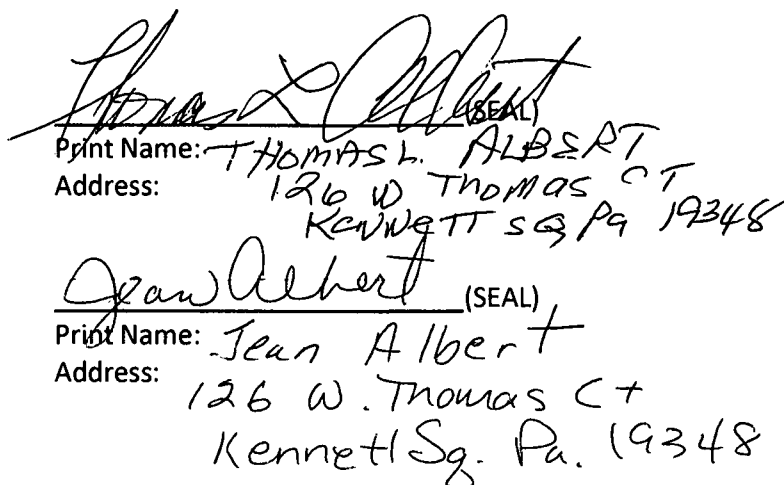 Thomas L Albert (SEAL)
Print Name: THOMAS L. ALBERT
Address: 126 W THOMAS CT
KENNETT SQ Pa 19348
Jean Albert (SEAL)
Print Name: Jean Albert
Address:
126 W. Thomas Ct
Kennett Sq. Pa. 19348